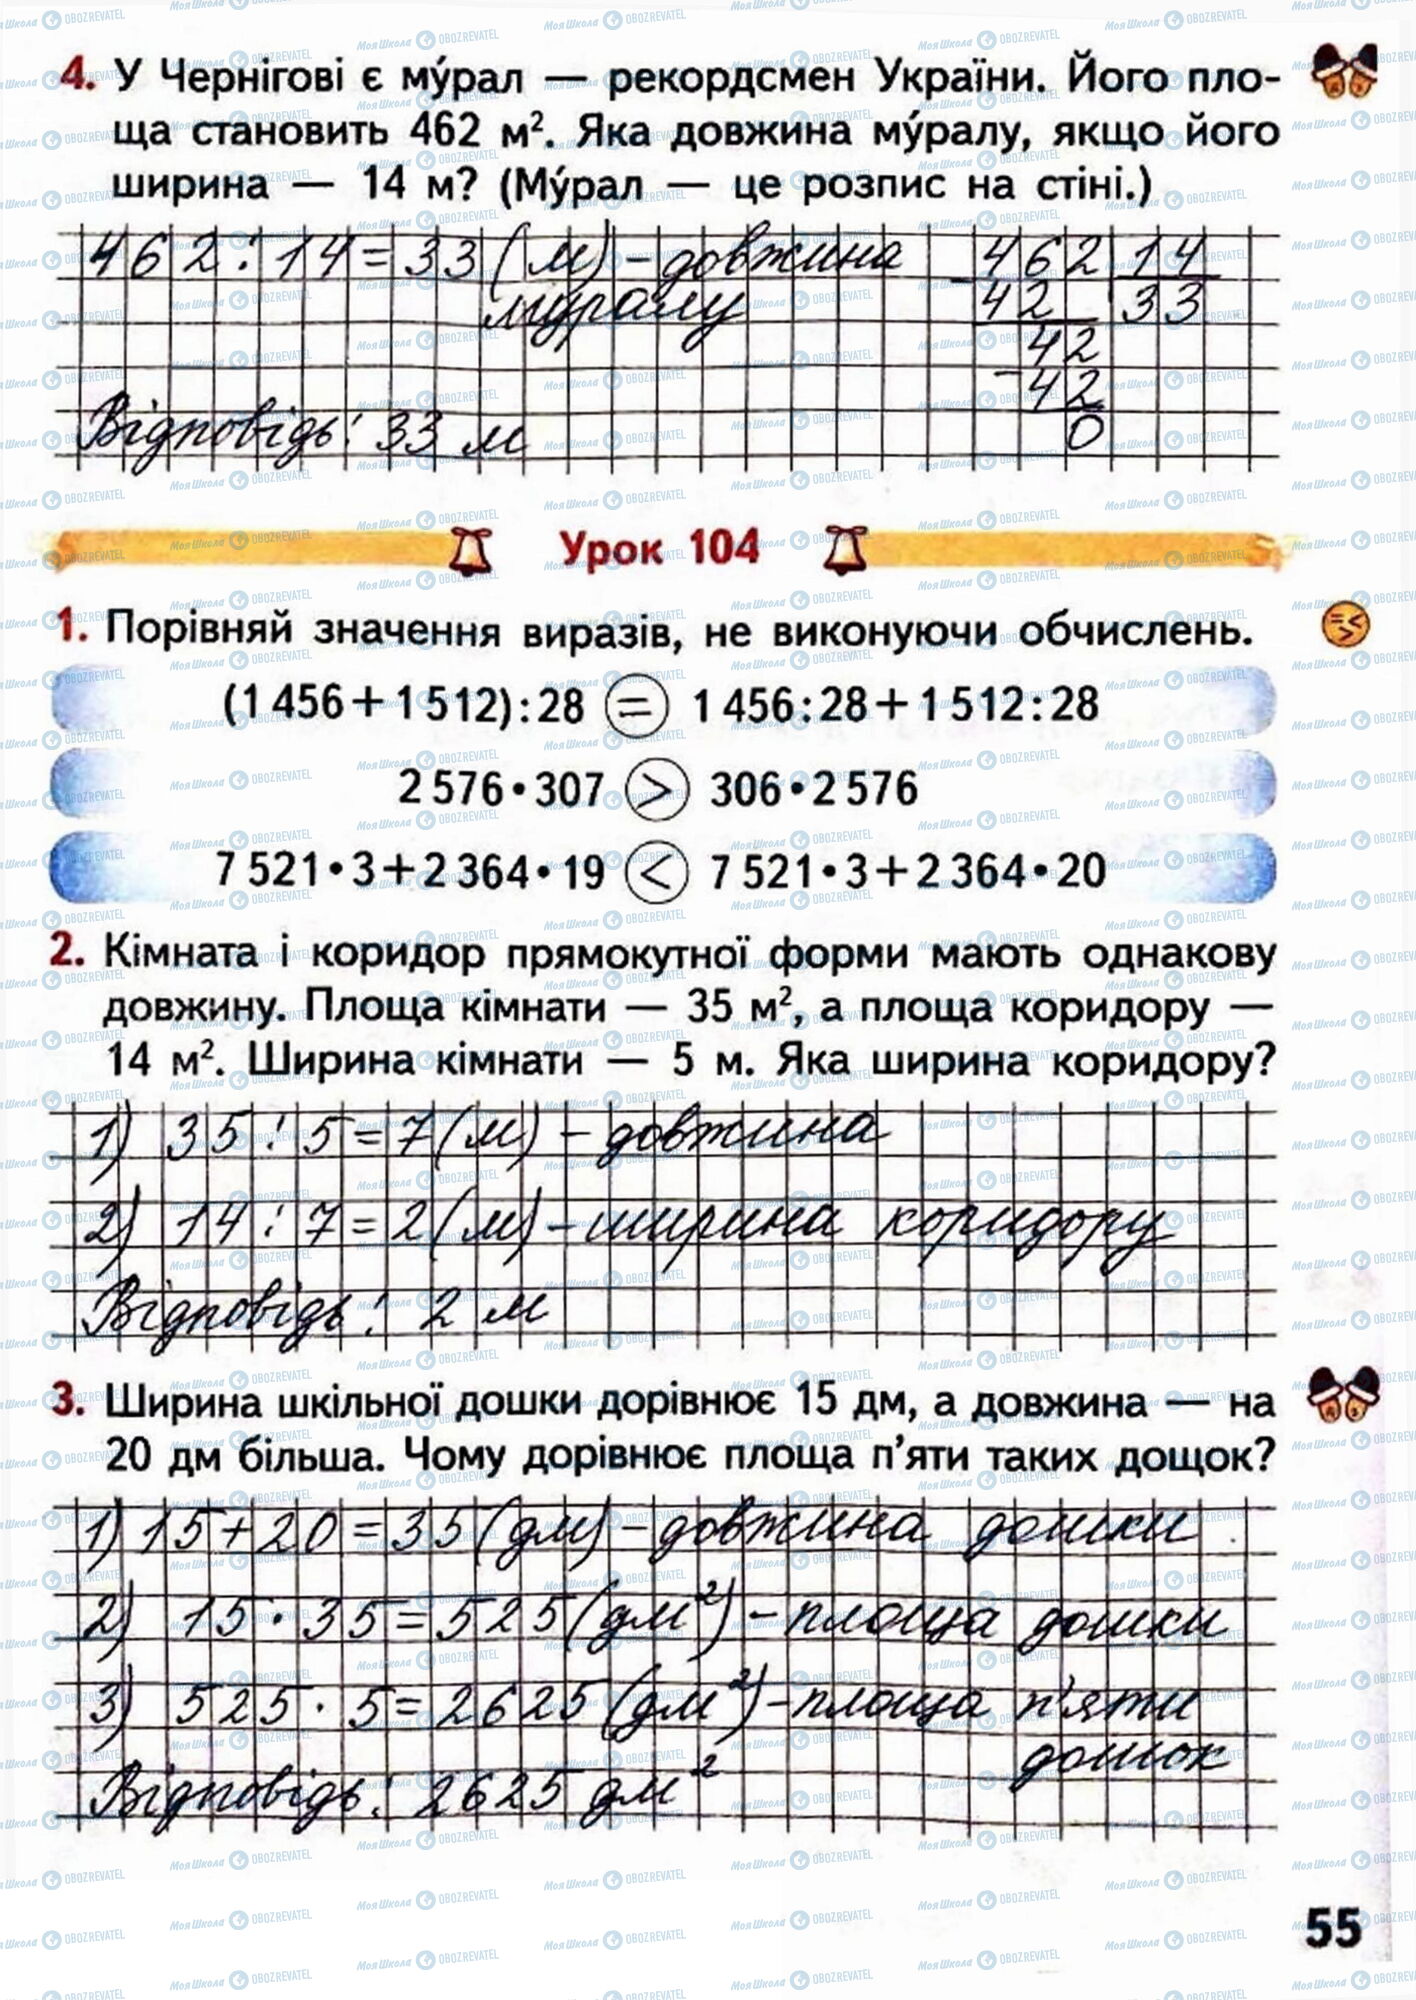 4. У Чернігові є му́рал — рекордсмен України. Його пло-
ща становить 462 м². Яка довжина му́ралу, якщо його
ширина — 14 м? (Му́рал — це розпис на стіні.)
462 : 14 = 33 (м) – довжина
муралу
462 14
42 33
42
42
0
Відповідь: 33 м
Урок 104
1. Порівняй значення виразів, не виконуючи обчислень.
(1 456 + 1 512) : 28 = 1 456 : 28 + 1 512 : 28
2 576 • 307 > 306 • 2 576
7 521 • 3 + 2 364 • 19 < 7 521 • 3 + 2 364 • 20
2. Кімната і коридор прямокутної форми мають однакову
довжину. Площа кімнати — 35 м², а площа коридору —
14 м². Ширина кімнати — 5 м. Яка ширина коридору?
1) 35 : 5 = 7 (м) – довжина
2) 14 : 7 = 2 (м) – ширина коридору
Відповідь: 2 м
3. Ширина шкільної дошки дорівнює 15 дм, а довжина — на
20 дм більша. Чому дорівнює площа п’яти таких дощок?
1) 15 + 20 = 35 (дм) – довжина дошки
2) 15 · 35 = 525 (дм²) – площа дошки
3) 525 · 5 = 2625 (дм²) – площа п'яти
дошок
Відповідь: 2625 дм²
55
МояШкола OBOZREVATEL